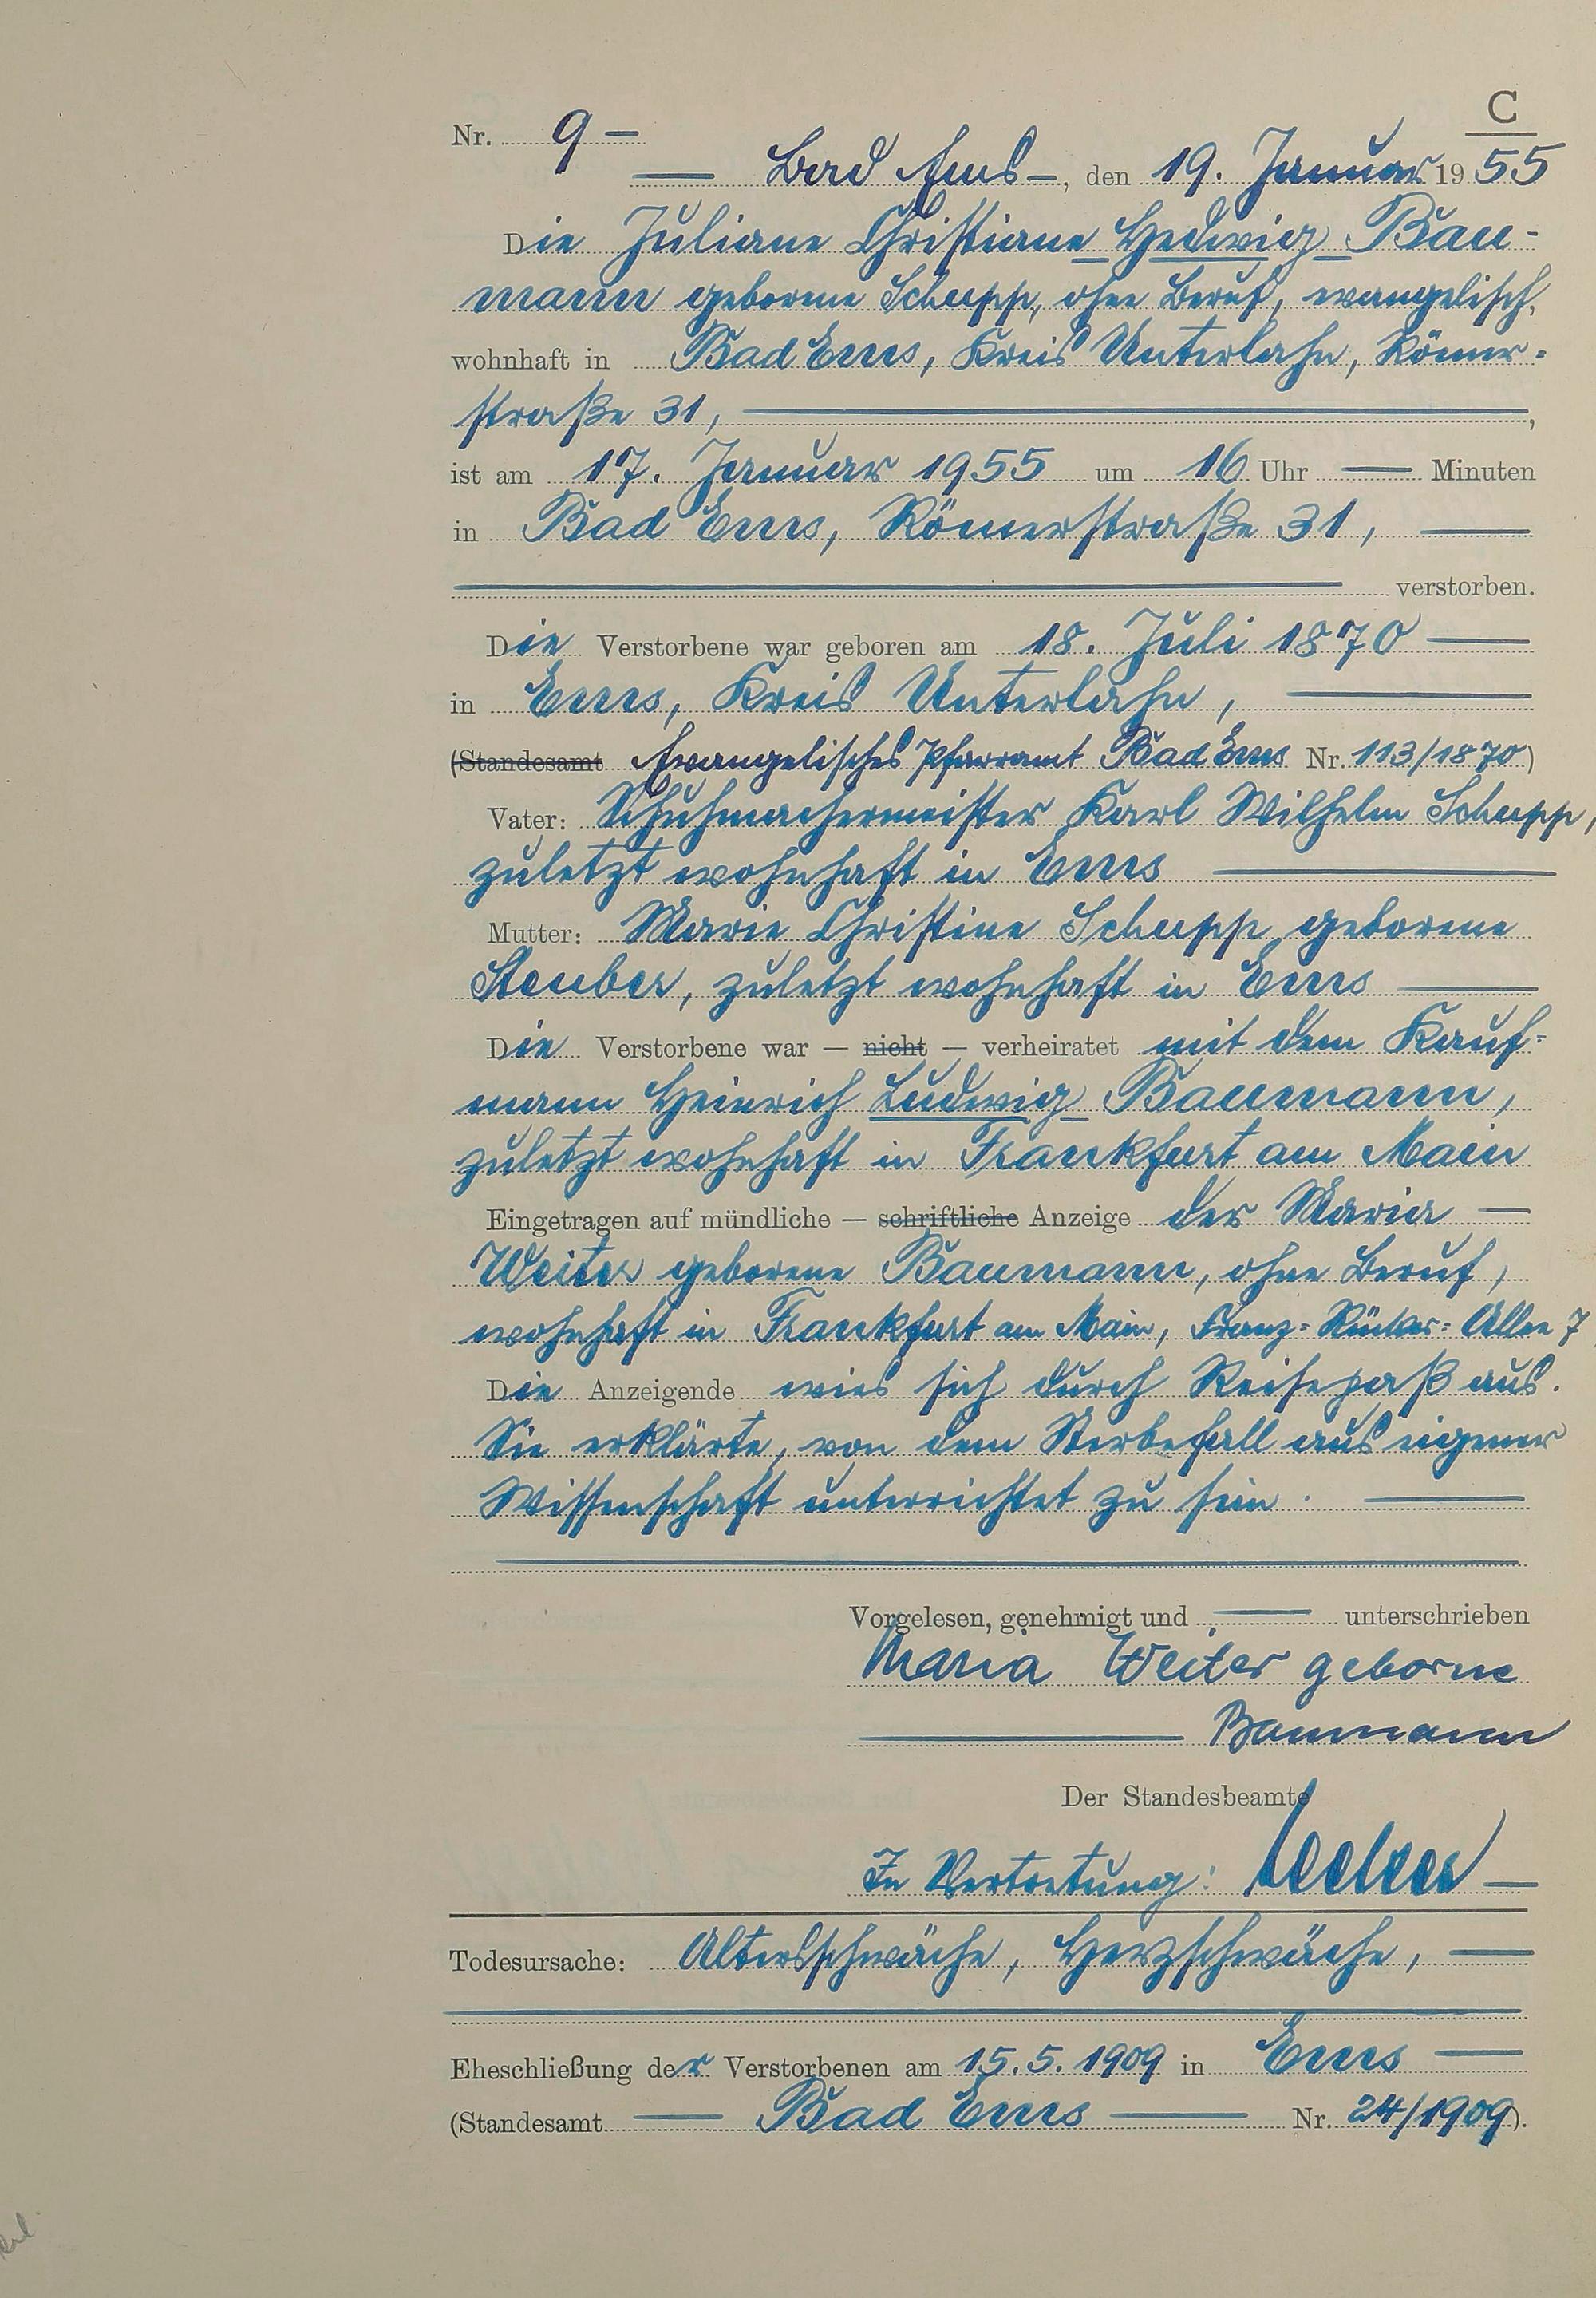 C
Nr. 9 —
— Bad Ems —, den 19. Januar 1955
Die Juliane Christiane Hedwig Bau-
mann geborene Schupp, ohne Beruf, evangelisch,
wohnhaft in Bad Ems, Kreis Unterlahn, Römer-
straße 31, ,
ist am 17. Januar 1955 um 16 Uhr — Minuten
in Bad Ems, Römerstraße 31, —
verstorben.
Die Verstorbene war geboren am 18. Juli 1870 —
in Ems, Kreis Unterlahn, —
(Standesamt Evangelisches Pfarramt Bad Ems Nr. 113/1870)
Vater: Schuhmachermeister Karl Wilhelm Schupp,
zuletzt wohnhaft in Ems —
Mutter: Marie Christine Schupp geborene
Steuber, zuletzt wohnhaft in Ems —
Die Verstorbene war — nicht — verheiratet mit dem Kauf-
mann Heinrich Ludwig Baumann,
zuletzt wohnhaft in Frankfurt am Main
Eingetragen auf mündliche — schriftliche Anzeige der Maria —
Weiter geborene Baumann, ohne Beruf,
wohnhaft in Frankfurt am Main, Franz-Rücker-Allee 7
Die Anzeigende wies sich durch Reisepaß aus.
Sie erklärte, von dem Sterbefall aus eigener
Wissenschaft unterrichtet zu sein. —
Vorgelesen, genehmigt und — unterschrieben
Maria Weiter geborne
— Baumann
Der Standesbeamte
In Vertretung: —
Todesursache: Altersschwäche, Herzschwäche, —
Eheschließung der Verstorbenen am 15.5.1909 in Ems —
(Standesamt — Bad Ems — Nr. 24/1909).